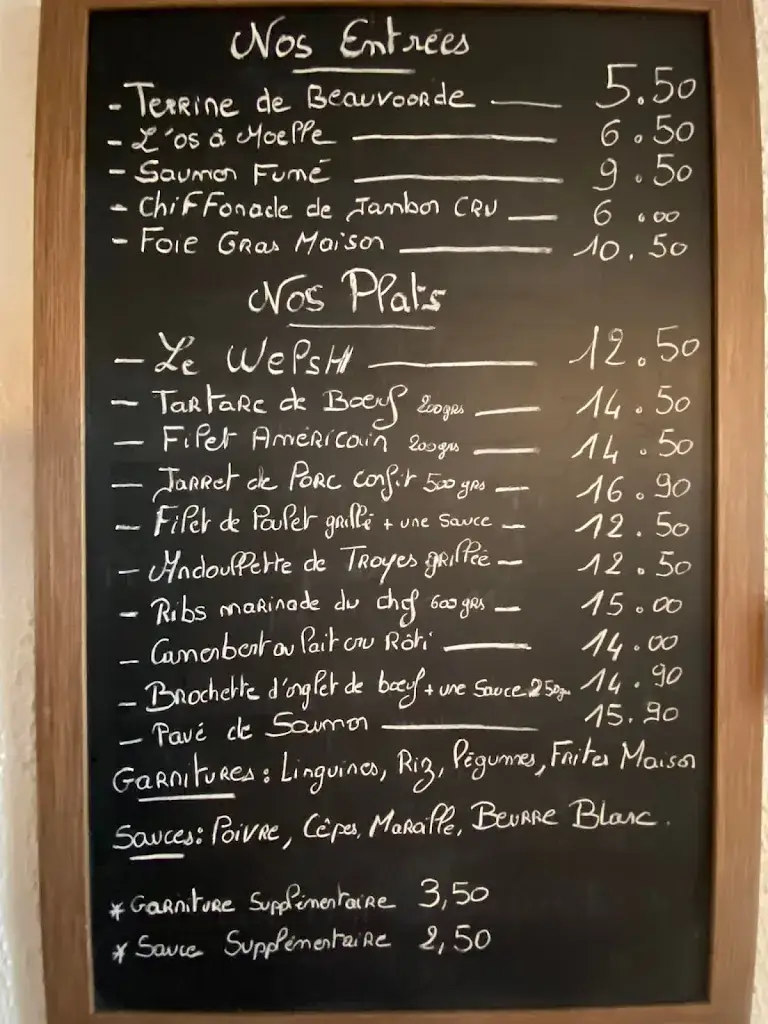 Nos Entrées
- Terrine de Beauvoorde — 5.50
- L'os à Moelle — 6.50
- Saumon Fumé — 9.50
- Chiffonade de Jambon CRU — 6.00
- Foie Gras Maison — 10.50
Nos Plats
- Le Welsh — 12.50
- Tartare de Boeuf 200grs — 14.50
- Filet Américain 200grs — 14.50
- Jarret de Porc confit 500 grs — 16.90
- Filet de Poulet grillé + une Sauce — 12.50
- Andouillette de Troyes grillée — 12.50
- Ribs marinade du chef 600 grs — 15.00
- Camembert au lait cru Rôti — 14.00
- Brochette d'onglet de boeuf + une Sauce 250gr 14.90
- Pavé de Saumon — 15.90
Garnitures : Linguines, Riz, Légumes, Frites Maison
Sauces : Poivre, Cêpes, Maroille, Beurre Blanc.
* Garniture Supplémentaire 3,50
* Sauce Supplémentaire 2,50